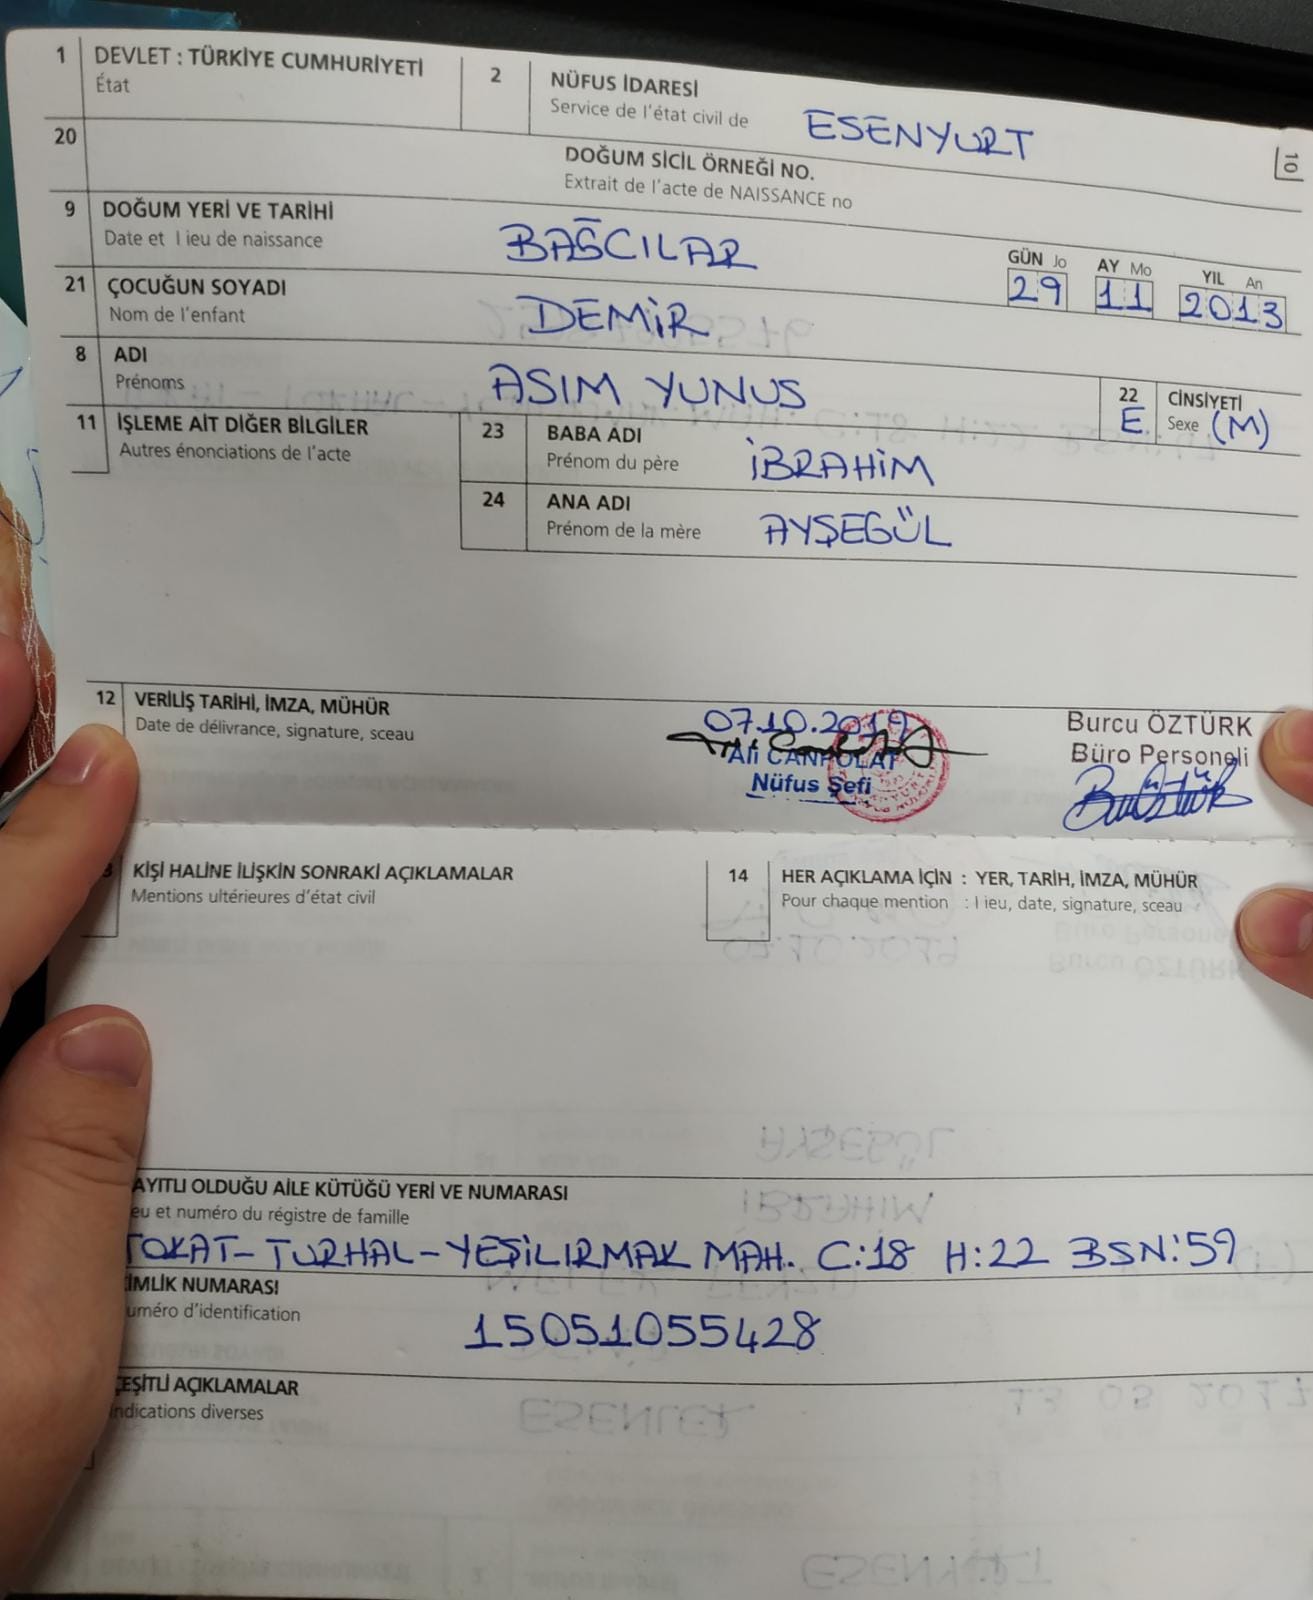 1 DEVLET : TÜRKİYE CUMHURİYETİ
État
2 NÜFUS İDARESİ
Service de l'état civil de
ESENYURT
10
20
DOĞUM SİCİL ÖRNEĞİ NO.
Extrait de l'acte de NAISSANCE no
9 DOĞUM YERİ VE TARİHİ
Date et lieu de naissance
BAĞCILAR
GÜN Jo AY Mo YIL An
29 11 2013
21 ÇOCUĞUN SOYADI
Nom de l'enfant
DEMİR
8 ADI
Prénoms
ASIM YUNUS
22 CİNSİYETİ
E Sexe (M)
11 İŞLEME AİT DİĞER BİLGİLER
Autres énonciations de l'acte
23 BABA ADI
Prénom du père
İBRAHİM
24 ANA ADI
Prénom de la mère
AYŞEGÜL
12 VERİLİŞ TARİHİ, İMZA, MÜHÜR
Date de délivrance, signature, sceau
07.10.2019
Ali CANPOLAT
Nüfus Şefi
Burcu ÖZTÜRK
Büro Personeli
KİŞİ HALİNE İLİŞKİN SONRAKİ AÇIKLAMALAR
Mentions ultérieures d'état civil
14 HER AÇIKLAMA İÇİN : YER, TARİH, İMZA, MÜHÜR
Pour chaque mention : lieu, date, signature, sceau
AYITLI OLDUĞU AİLE KÜTÜĞÜ YERİ VE NUMARASI
eu et numéro du régistre de famille
TOKAT-TURHAL-YEŞİLIRMAK MAH. C:18 H:22 BSN:59
İMLİK NUMARASI
uméro d'identification
15051055428
EŞİTLİ AÇIKLAMALAR
Indications diverses